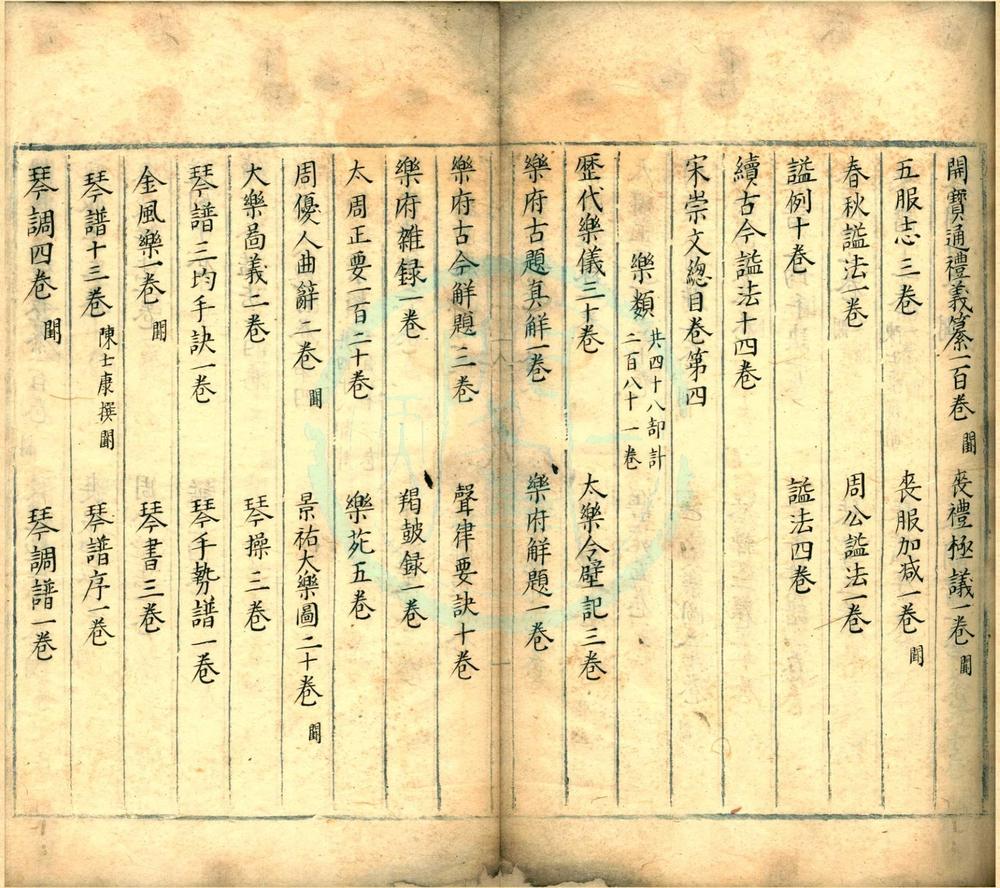 開寶通禮義纂一百卷 闕 喪禮極議一卷 闕
五服志三卷 喪服加減一卷 闕
春秋謚法一卷 周公謚法一卷
謚例十卷 謚法四卷
續古今謚法十四卷
宋崇文緫目卷第四
樂類 共四十八部計二百八十一卷
歷代樂儀三十卷 太樂令壁記三卷
樂府古題真解一卷 樂府解題一卷
樂府古今解題三卷 聲律要訣十卷
樂府雜録一卷 羯鼓録一卷
太周正要一百二十卷 樂苑五卷
周優人曲辭二卷 闕 景祐大樂圖二十卷 闕
大樂啚義二卷 琴操三卷
琴譜三均手訣一卷 琴手勢譜一卷
金風樂一卷 闕 琴書三卷
琴譜十三卷 陳士康撰闕 琴譜序一卷
琴調四卷 闕 琴調譜一卷